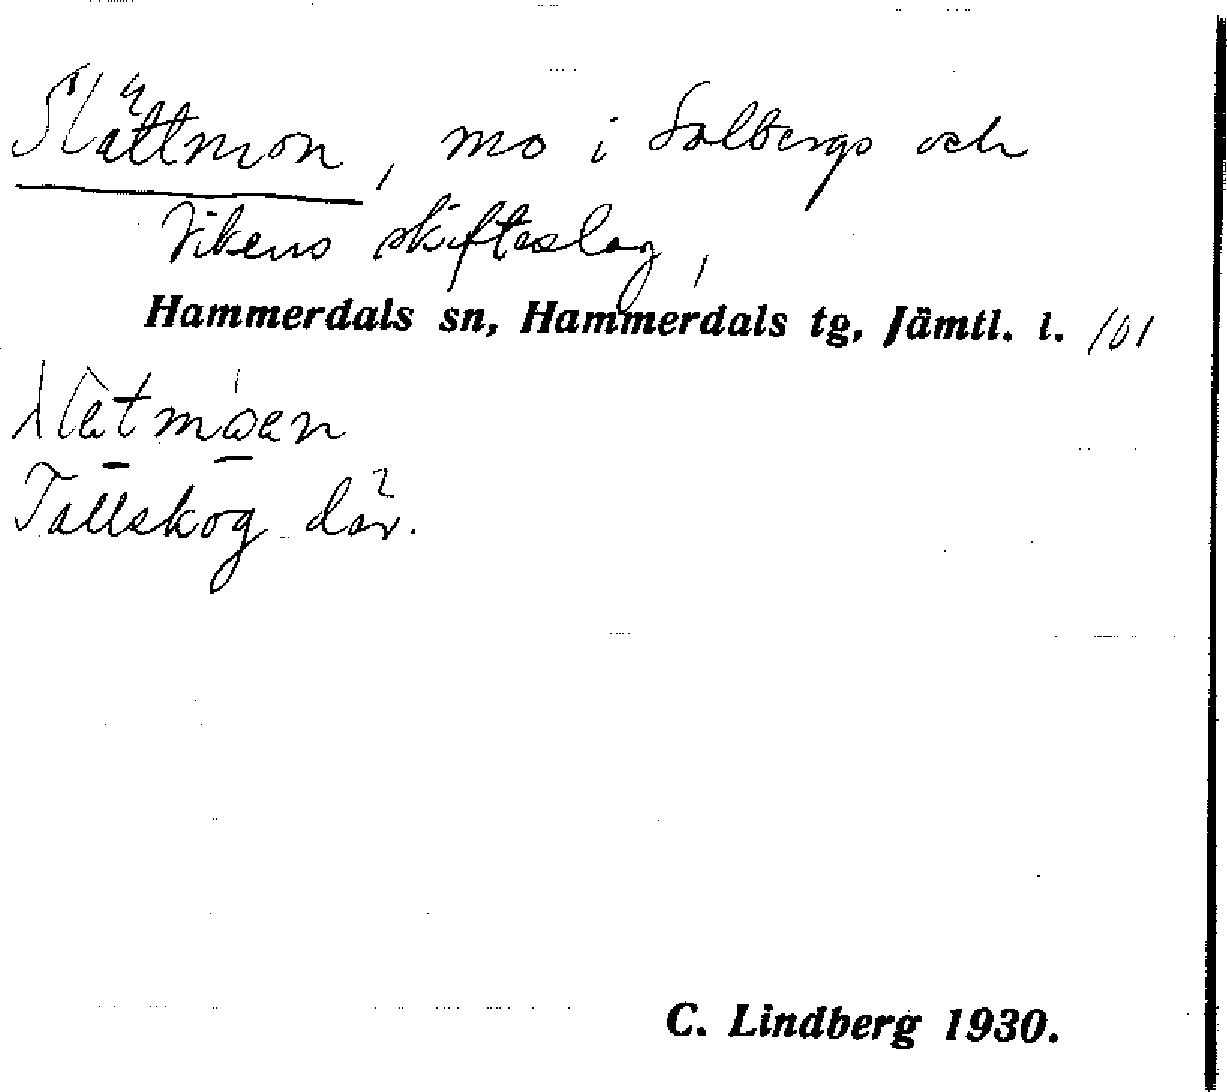 Slättmon, mo i Solbergs och
Vikens skifteslag,
Hammerdals sn, Hammerdals tg, Jämtl. l. 101
Tallskog där.
C. Lindberg 1930.